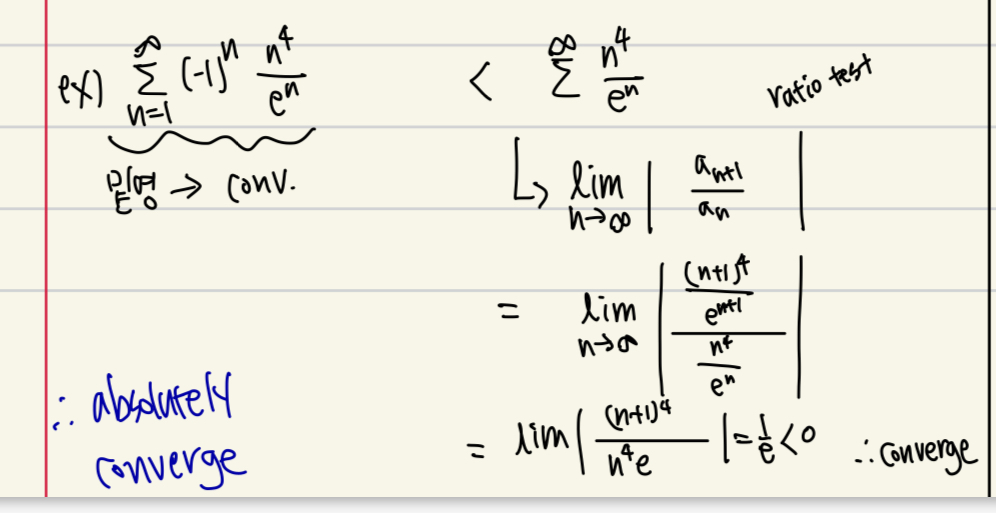 ex) ∞∑n=1 (-1)ⁿ n⁴/eⁿ < ∞∑ n⁴/eⁿ ratio test
→ conv.
↳ lim n→∞ | aₙ₊₁/aₙ |
= lim n→∞ | ((n+1)⁴/eⁿ⁺¹)/(n⁴/eⁿ) |
= lim | (n+1)⁴/n⁴e | = 1/e < 0 ∴ converge
∴ absolutely
converge